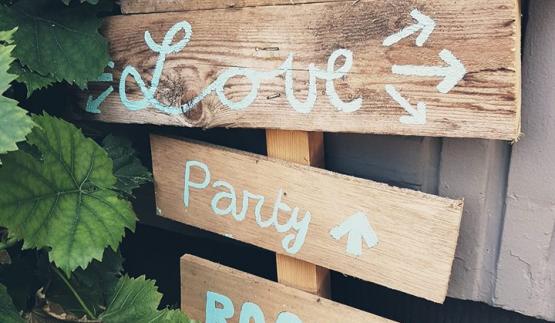 Love
Party